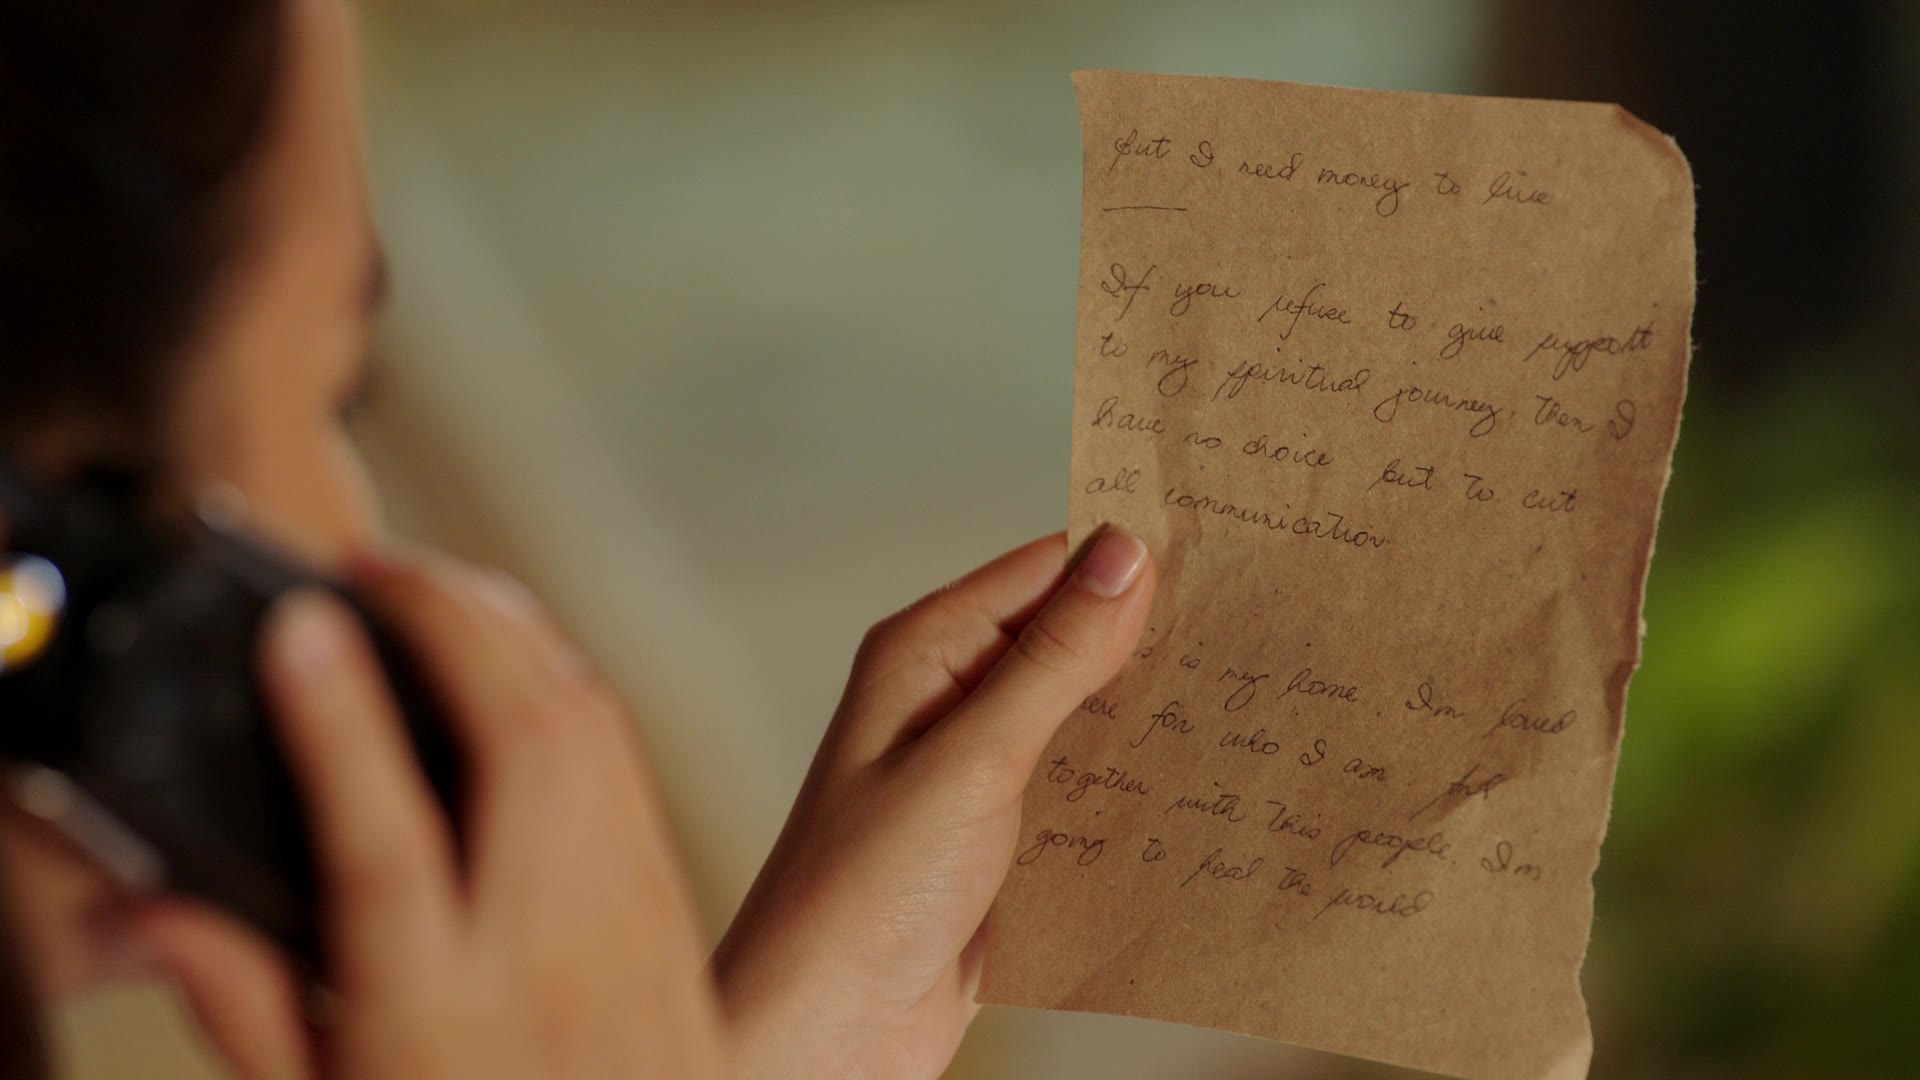 but I need money to live
If you refuse to give support
to my spiritual journey, then I
have no choice but to cut
all communication
is my home. I'm loved
for who I am. And
together with this people, I'm
going to heal the world